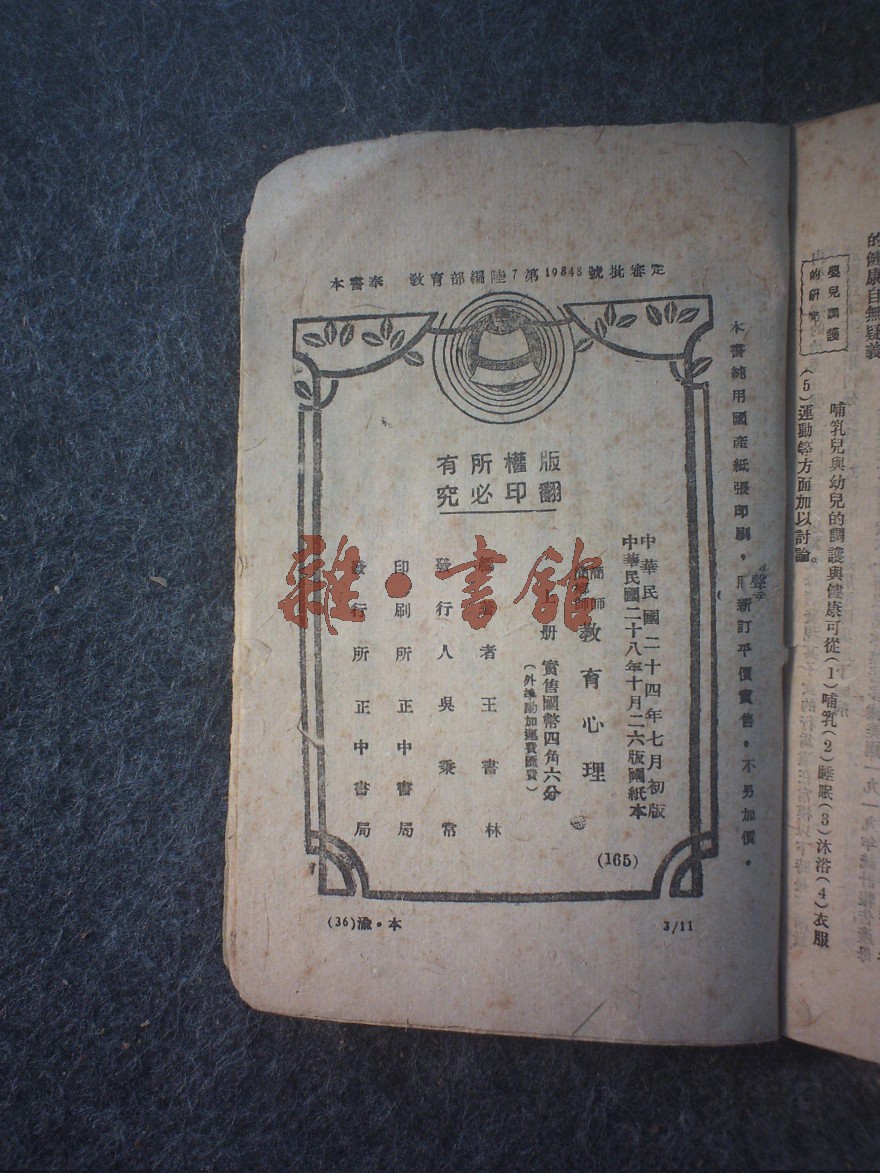 本書奉 教育部編陸7第19848號批審定
版權所有
翻印必究
本書純用國產紙張印刷，新訂平價實售，不另加價。
中華民國二十四年七月初版
中華民國二十八年十月二六版國紙本
教育心理
上册 實售國幣四角六分
(外埠酌加運費匯費)
者 王書林
發行人 吳秉常
印刷所 正中書局
發行所 正中書局
(165)
(36)渝·本
3/11
雜·書館
的健康自無疑義
嬰兒調護
的研究
哺乳兒與幼兒的調護與健康可從(1)哺乳(2)睡眠(3)沐浴(4)衣服
(5)運動等方面加以討論。